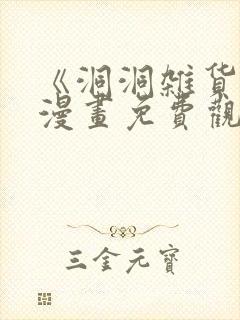 《洞洞雑货
漫畫免費觀
三金元寶